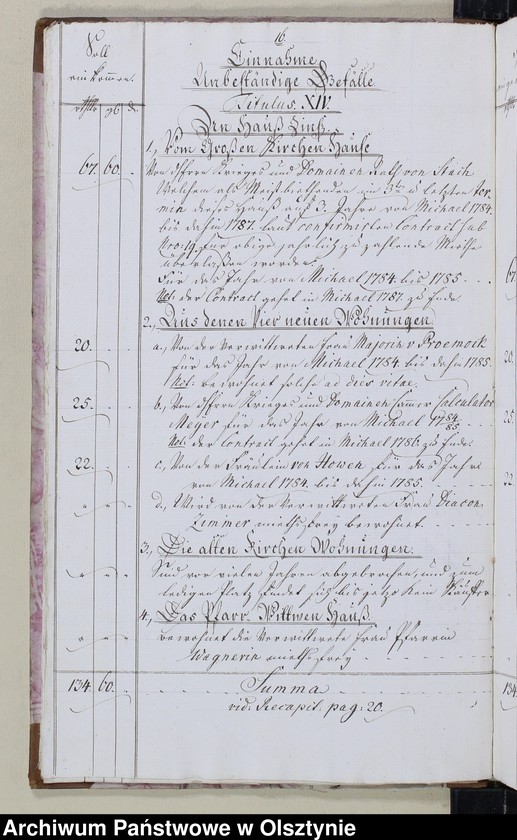 16.
Soll
einkommen.
rthlr gb d.
Einnahme
Unbeständige Gefälle
Titulus. XIV.
Den Hauß Zinß.
1., Vom Großen Kirchen Hause
67. 60. Von Herrn Krieges und Domainen Rath von Stach
Welchem als Meistbiethenden in 3ten u letzten Ter
min dieses Hauß auf 3. Jahre von Michael 1784.
bis dahin 1787. laut confirmirten Contract sub
Nro: 19 für obige jährlich zu zahlende Miethe
überlaßen worden.
Für das Jahr von Michael 1784. bis 1785.
Not: der Contract gehet in Michael 1787. zu Ende.
2., Aus denen Vier neuen Wohnungen
20. a., Von der Verwittweten Frau Majorin v Proemock
für das Jahr von Michael 1784. bis dahin 1785.
Not: bewohnet solche ad dies vitae.
25. b., Von Herrn Krieges und Domainen Cammer Calculator
Meyer für das Jahr von Michael 1784/85.
Not: der Contract gehet in Michael 1786. zu Ende.
22. c., Von der Fräulein von Howen für das Jahr
von Michael 1784. bis dahin 1785.
d., Wird von der Verwittweten Frau Diacon.
Zimmer miethsfrey bewohnet
3., Die alten Kirchen Wohnungen.
Sind vor vielen Jahren abgebrochen, und zum
ledigen Platz findet sich bis jetzo kein Käuffer
4., Das Pfarr Wittwen Hauß
bewohnet die Verwittwete Frau Pfarrin
Wagnerin miethsfrey
134. 60. Summa
vid: Recapit: pag: 20.
Archiwum Państwowe w Olsztynie